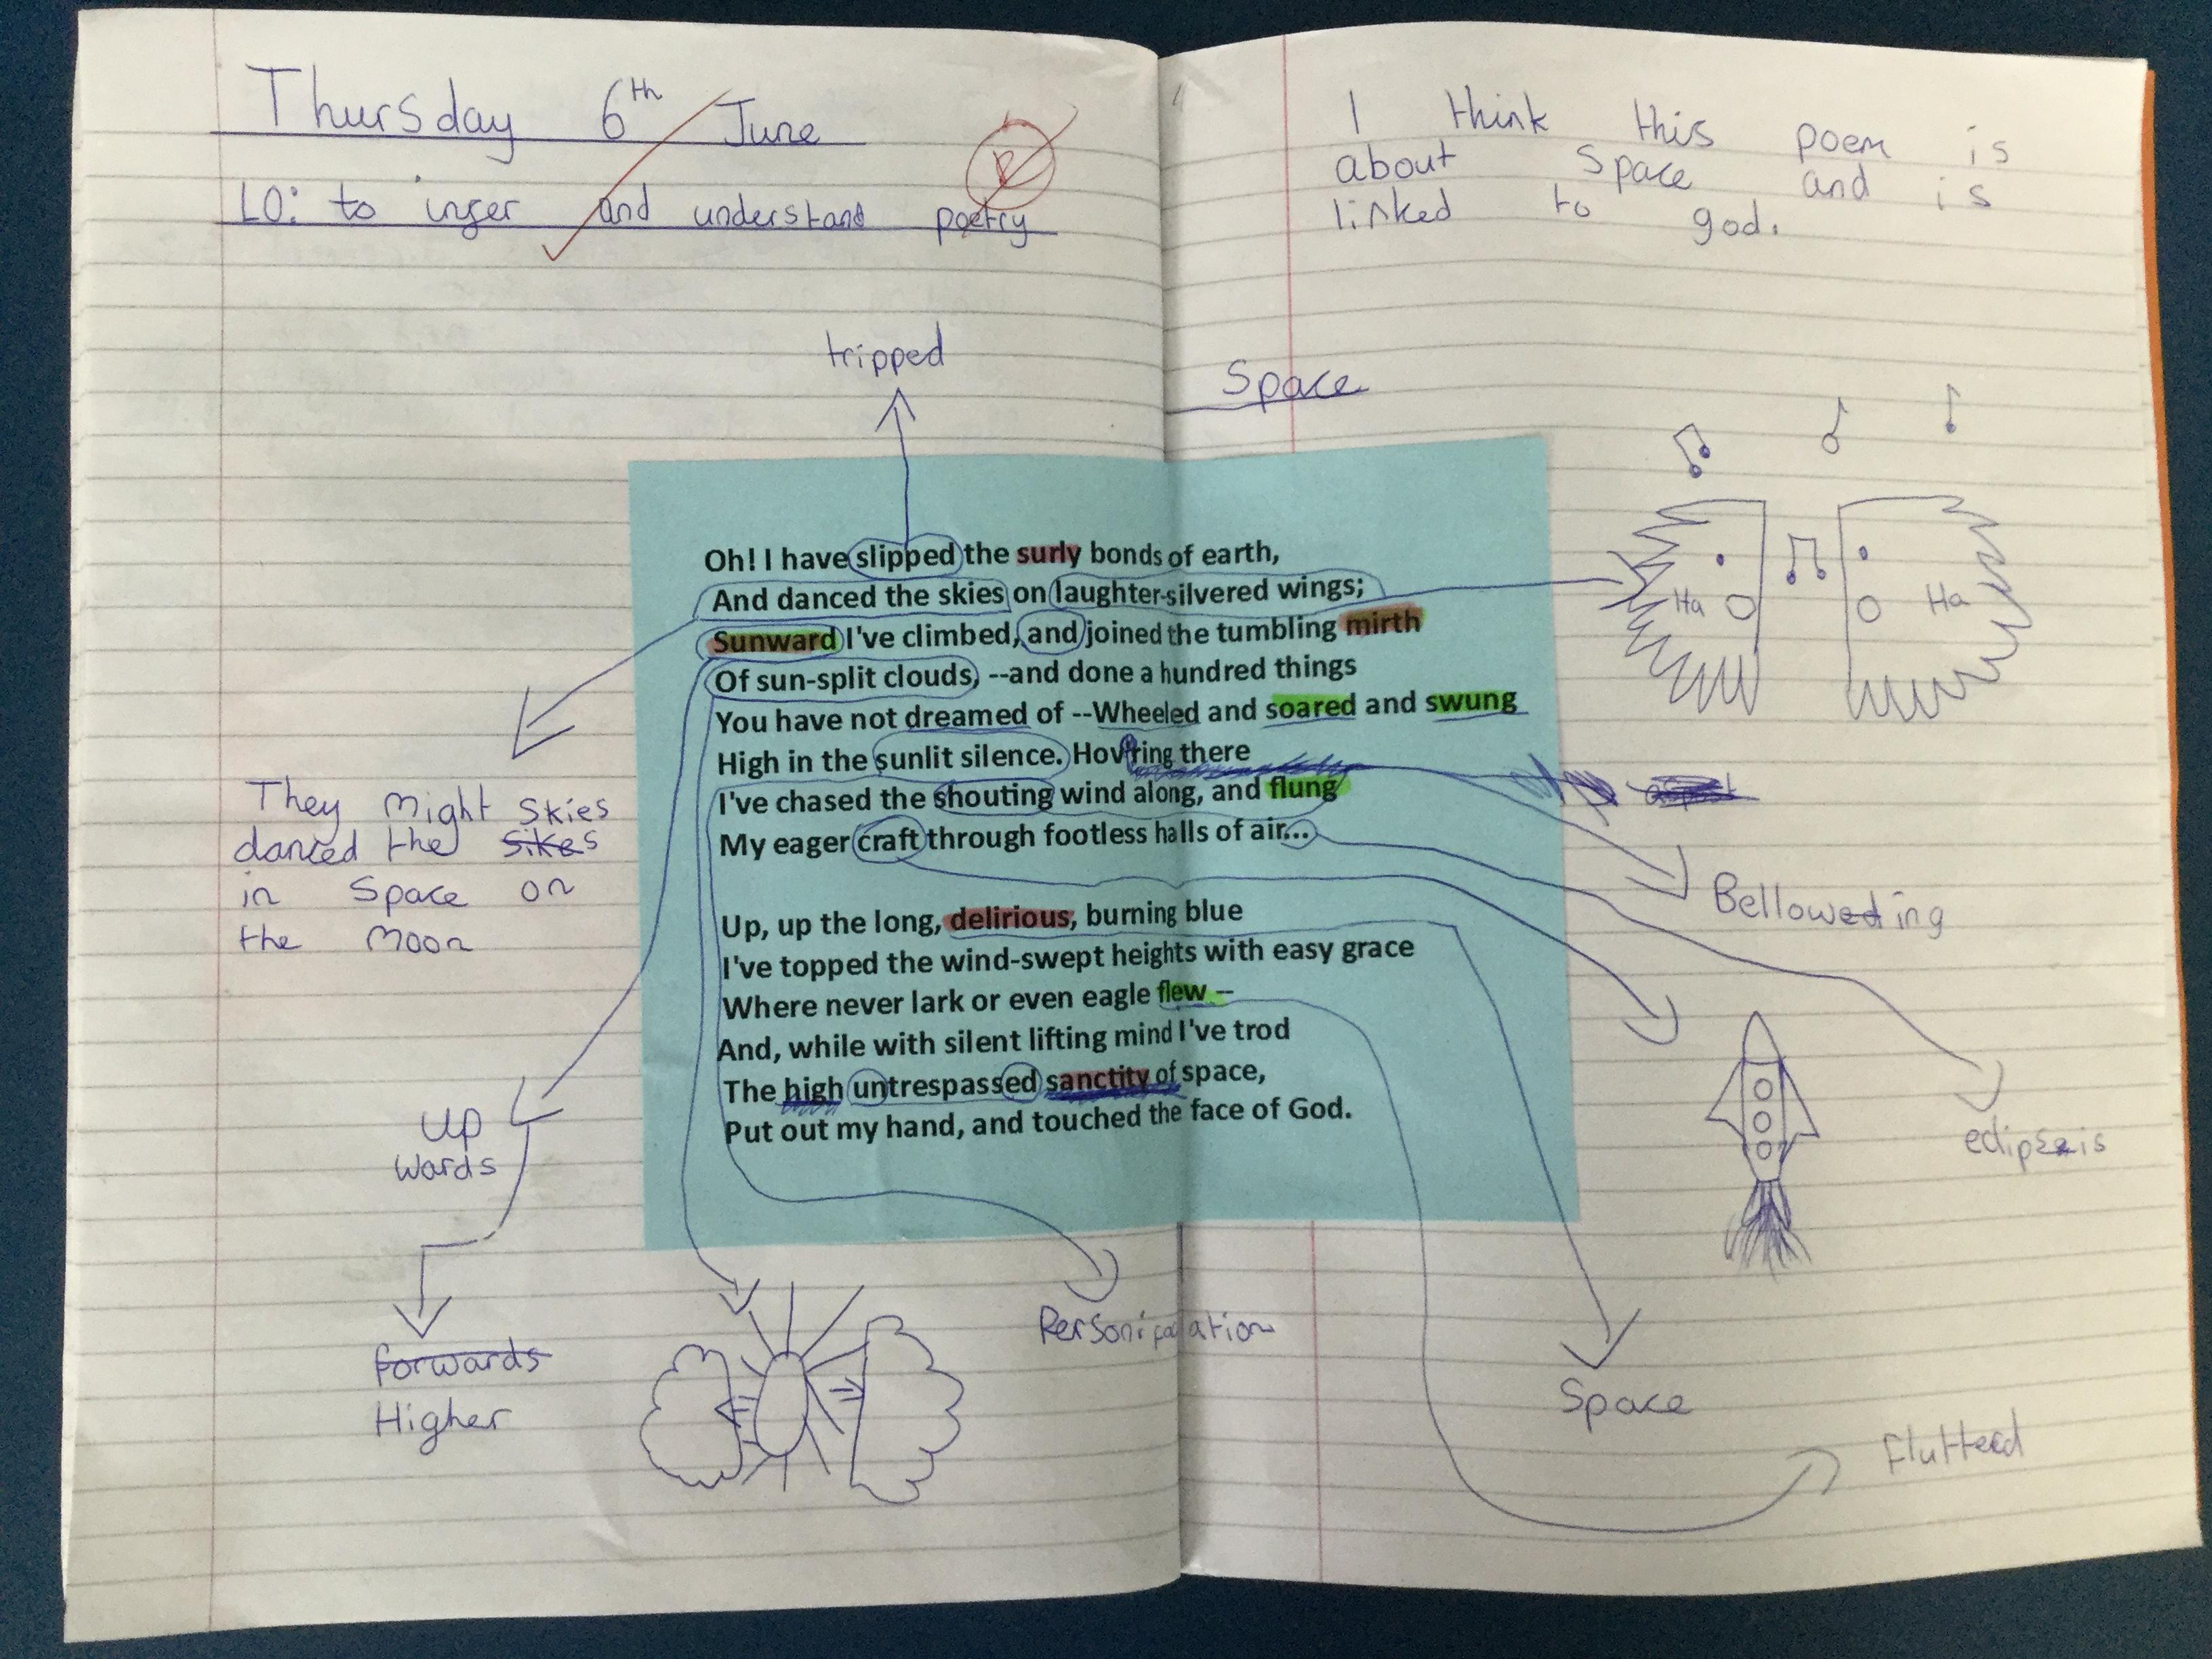 Thursday 6th June
LO: to infer and understand poetry
I think this poem is
about Space and is
linked to god.
tripped
Space
Oh! I have slipped the surly bonds of earth,
And danced the skies on laughter-silvered wings;
Sunward I've climbed, and joined the tumbling mirth
Of sun-split clouds, --and done a hundred things
You have not dreamed of --Wheeled and soared and swung
High in the sunlit silence. Hov'ring there
I've chased the shouting wind along, and flung
My eager craft through footless halls of air...
Up, up the long, delirious, burning blue
I've topped the wind-swept heights with easy grace
Where never lark or even eagle flew --
And, while with silent lifting mind I've trod
The high untrespassed sanctity of space,
Put out my hand, and touched the face of God.
Ha
Ha
They might skies
danced the sikes
in Space on
the Moon
Bellowed ing
Up
wards
forwards
Higher
Personification
Space